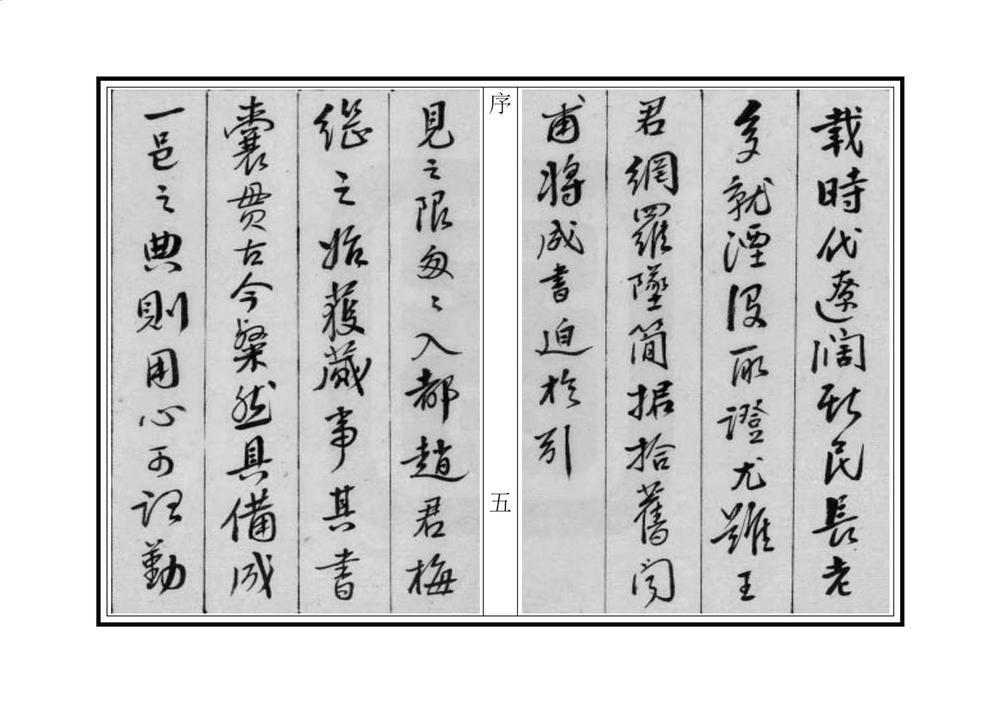 載時代遼闊耿民長老
多就湮沒取證尤難王
君網羅墜簡掂拾舊聞
甫將成書迫於引
序
五
見之限匆匆入都趙君梅
繼之始獲蕆事其書
囊贯古今粲然具備成
一邑之典則用心可謂勤